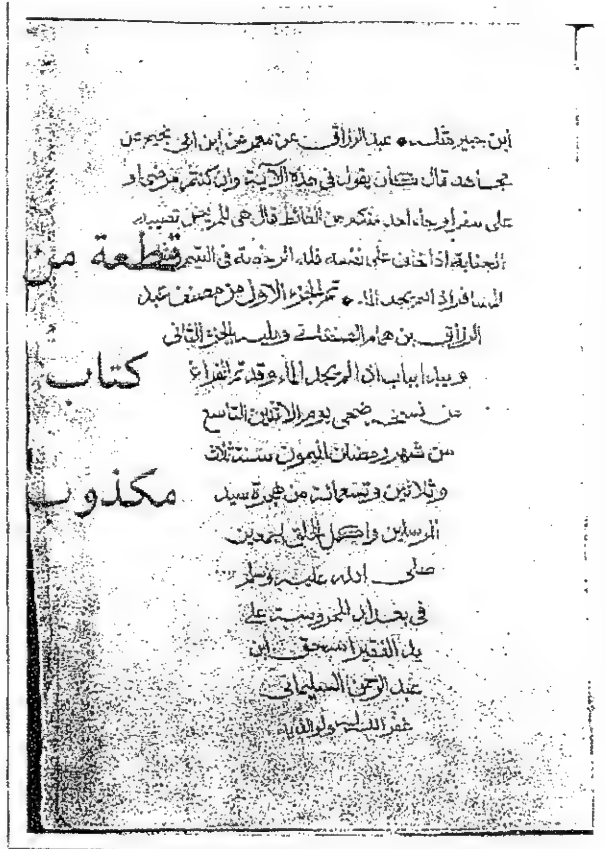 ابن جبير مثله • عبد الرزاق عن معمر عن ابن ابي نجيح عن
مجاهد قال كان يقول في هذه الآية وان كنتم مرضى او
على سفر او جاء احد منكم من الغائط قال هي للمريض تصيبه
الجنابة اذا خاف على نفسه فله الرخصة في التيمم مثل
المسافر اذا لم يجد الماء • تم الجزء الاول من مصنف عبد
الرزاق بن همام الصنعاني ويليه الجزء الثاني
ويبدا بباب اذا لم يجد الماء وقد تم الفراغ
من نسخه ضحى يوم الاثنين التاسع
من شهر رمضان الميمون سنة ثلاث
وثلاثين وتسعمائة من هجرة سيد
المرسلين واكمل الخلق اجمعين
صلى الله عليه وسلم
في بغداد المحروسة على
يد الفقير اسحق ابن
عبد الرحمن السليماني
غفر الله له ولوالديه
قطعة من
كتاب
مكذوب